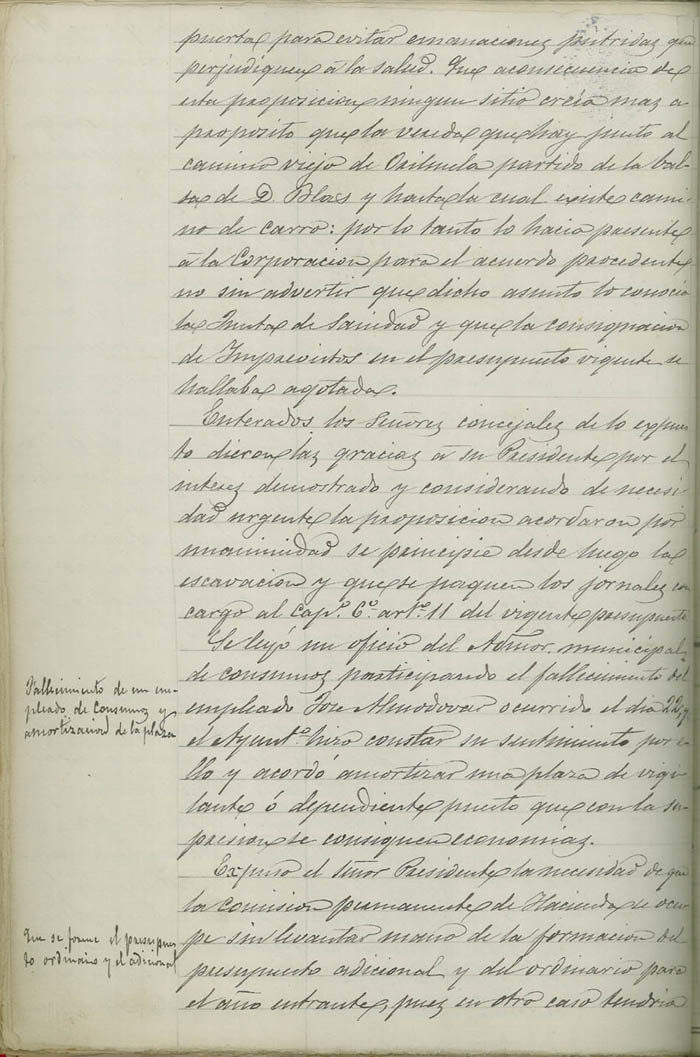 puerta para evitar emanaciones putridas que
perjudiquen á la salud. Que aconsecuencia de
esta proposicion ningun sitio creia mas a
proposito que la vereda que hay junto al
camino viejo de Orihuela partido de la bal-
sa de D. Blas y hasta la cual existe cami-
no de carro: por lo tanto lo hacia presente
á la Corporacion para el acuerdo procedente
no sin advertir que dicho asunto lo conocia
la Junta de Sanidad y que la consignacion
de Imprevistos en el presupuesto vigente se
hallaba agotada.
Enterados los Señores concejales de lo expues
to dieron las gracias á su Presidente por el
interes demostrado y considerando de necesi-
dad urgente la proposicion acordaron por
unanimidad se principie desde luego la
escavacion y que se paguen los jornales con
cargo al Capº. 6º. artº. 11 del vigente presupuesto
Se leyó un oficio del Admor. municipal
de consumos participando el fallecimiento del
empleado Jose Almodovar ocurrido el dia 22 y
el Ayuntº. hizo constar su sentimiento por e-
llo y acordó amortizar una plaza de vigi-
lante ó dependiente puesto que con la su-
presion se consiguen economias.
Expuso el Señor Presidente la necesidad de que
la comision permanente de Hacienda se ocu-
pe sin levantar mano de la formacion del
presupuesto adicional y del ordinario para
el año entrante, pues en otro caso tendria
Fallecimiento de un em-
pleado de Consumos y
amortizacion de la plaza
Que se forme el presupues
to ordinario y el adicional